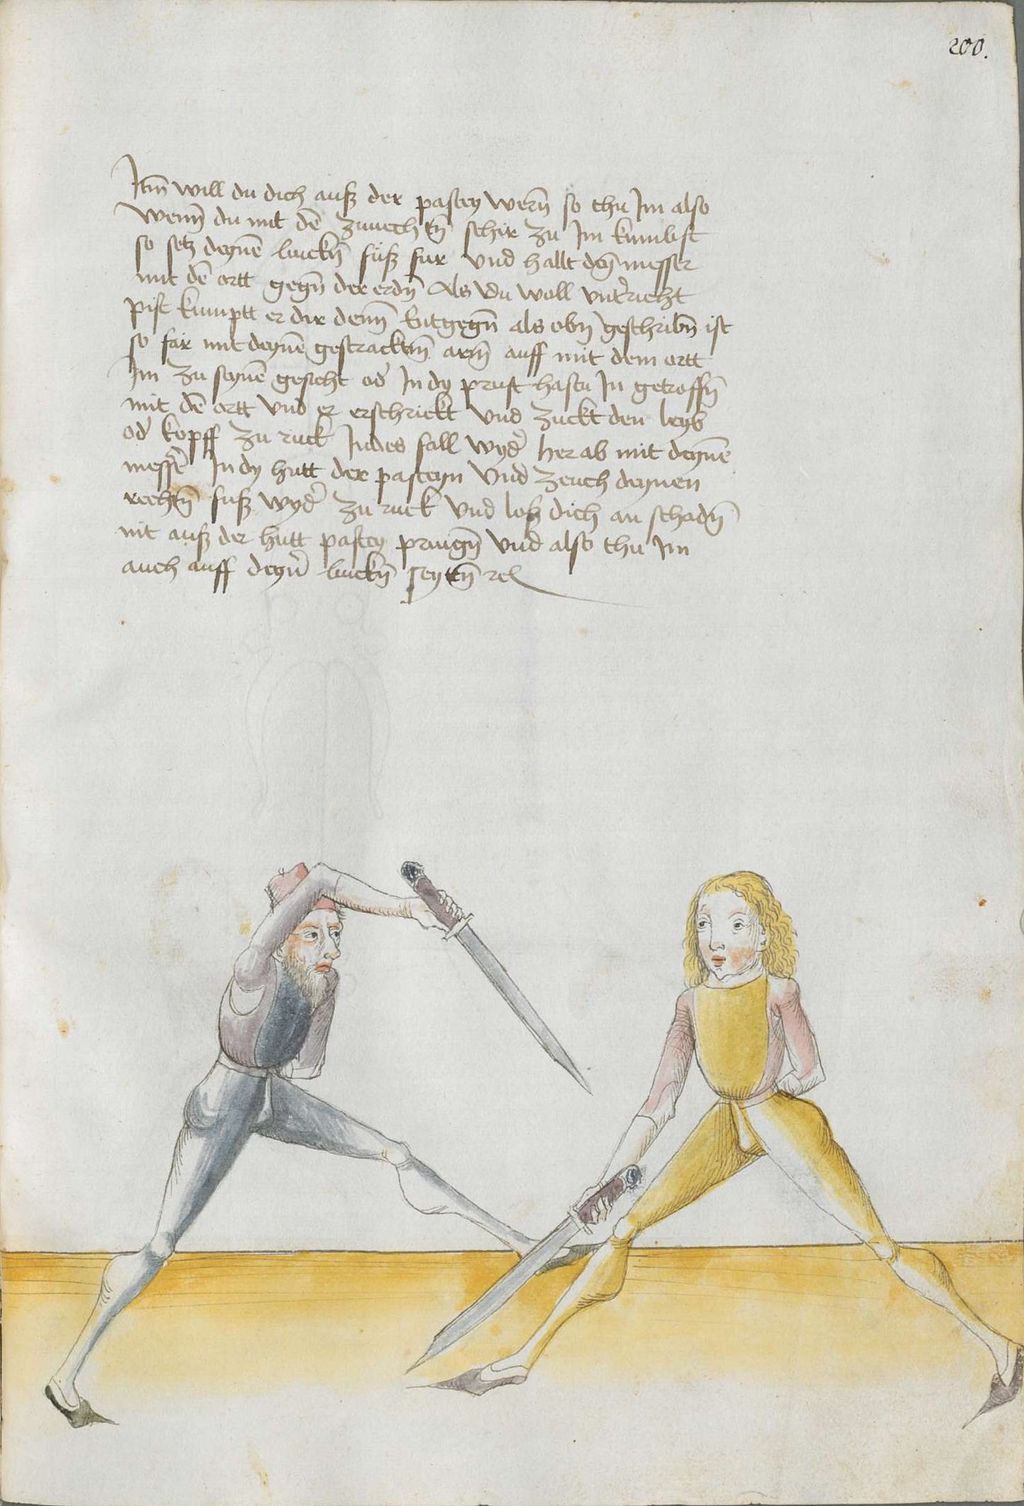 200.
Itm̄ will du dich auß der pastey wern̄ so thu Im also
Wenn̄ du mit dē zuuechtn̄ schir zu Im kumbst
so setz deynē lincken̄ fuß fur vnd hallt deȳ messer
mit dē ortt gegn̄ der erdn̄ Als du woll vnterricht
pist kumptt er dir denn̄ Entgegn̄ als obn̄ geschribn̄ ist
so far mit deynē gestracktem̄ arm̄ auff mit dem ortt
Im zu seynē gesicht od' In dy prust hastu In getroffn̄
mit dē ortt vnd er erschrickt vnd zuckt den leyb
od' kopff zu ruck Indes fall wyd' her ab mit deynē
messer̄ In dy hutt der pasteyn vnd zeuch deynen
rechtn̄ fuß wyd' zu ruck vnd loß dich an schadn̄
nit auß der hutt pastey pringn̄ vnd also thu Im
auch auff deyn̄ linckn̄ seyttn̄ rel